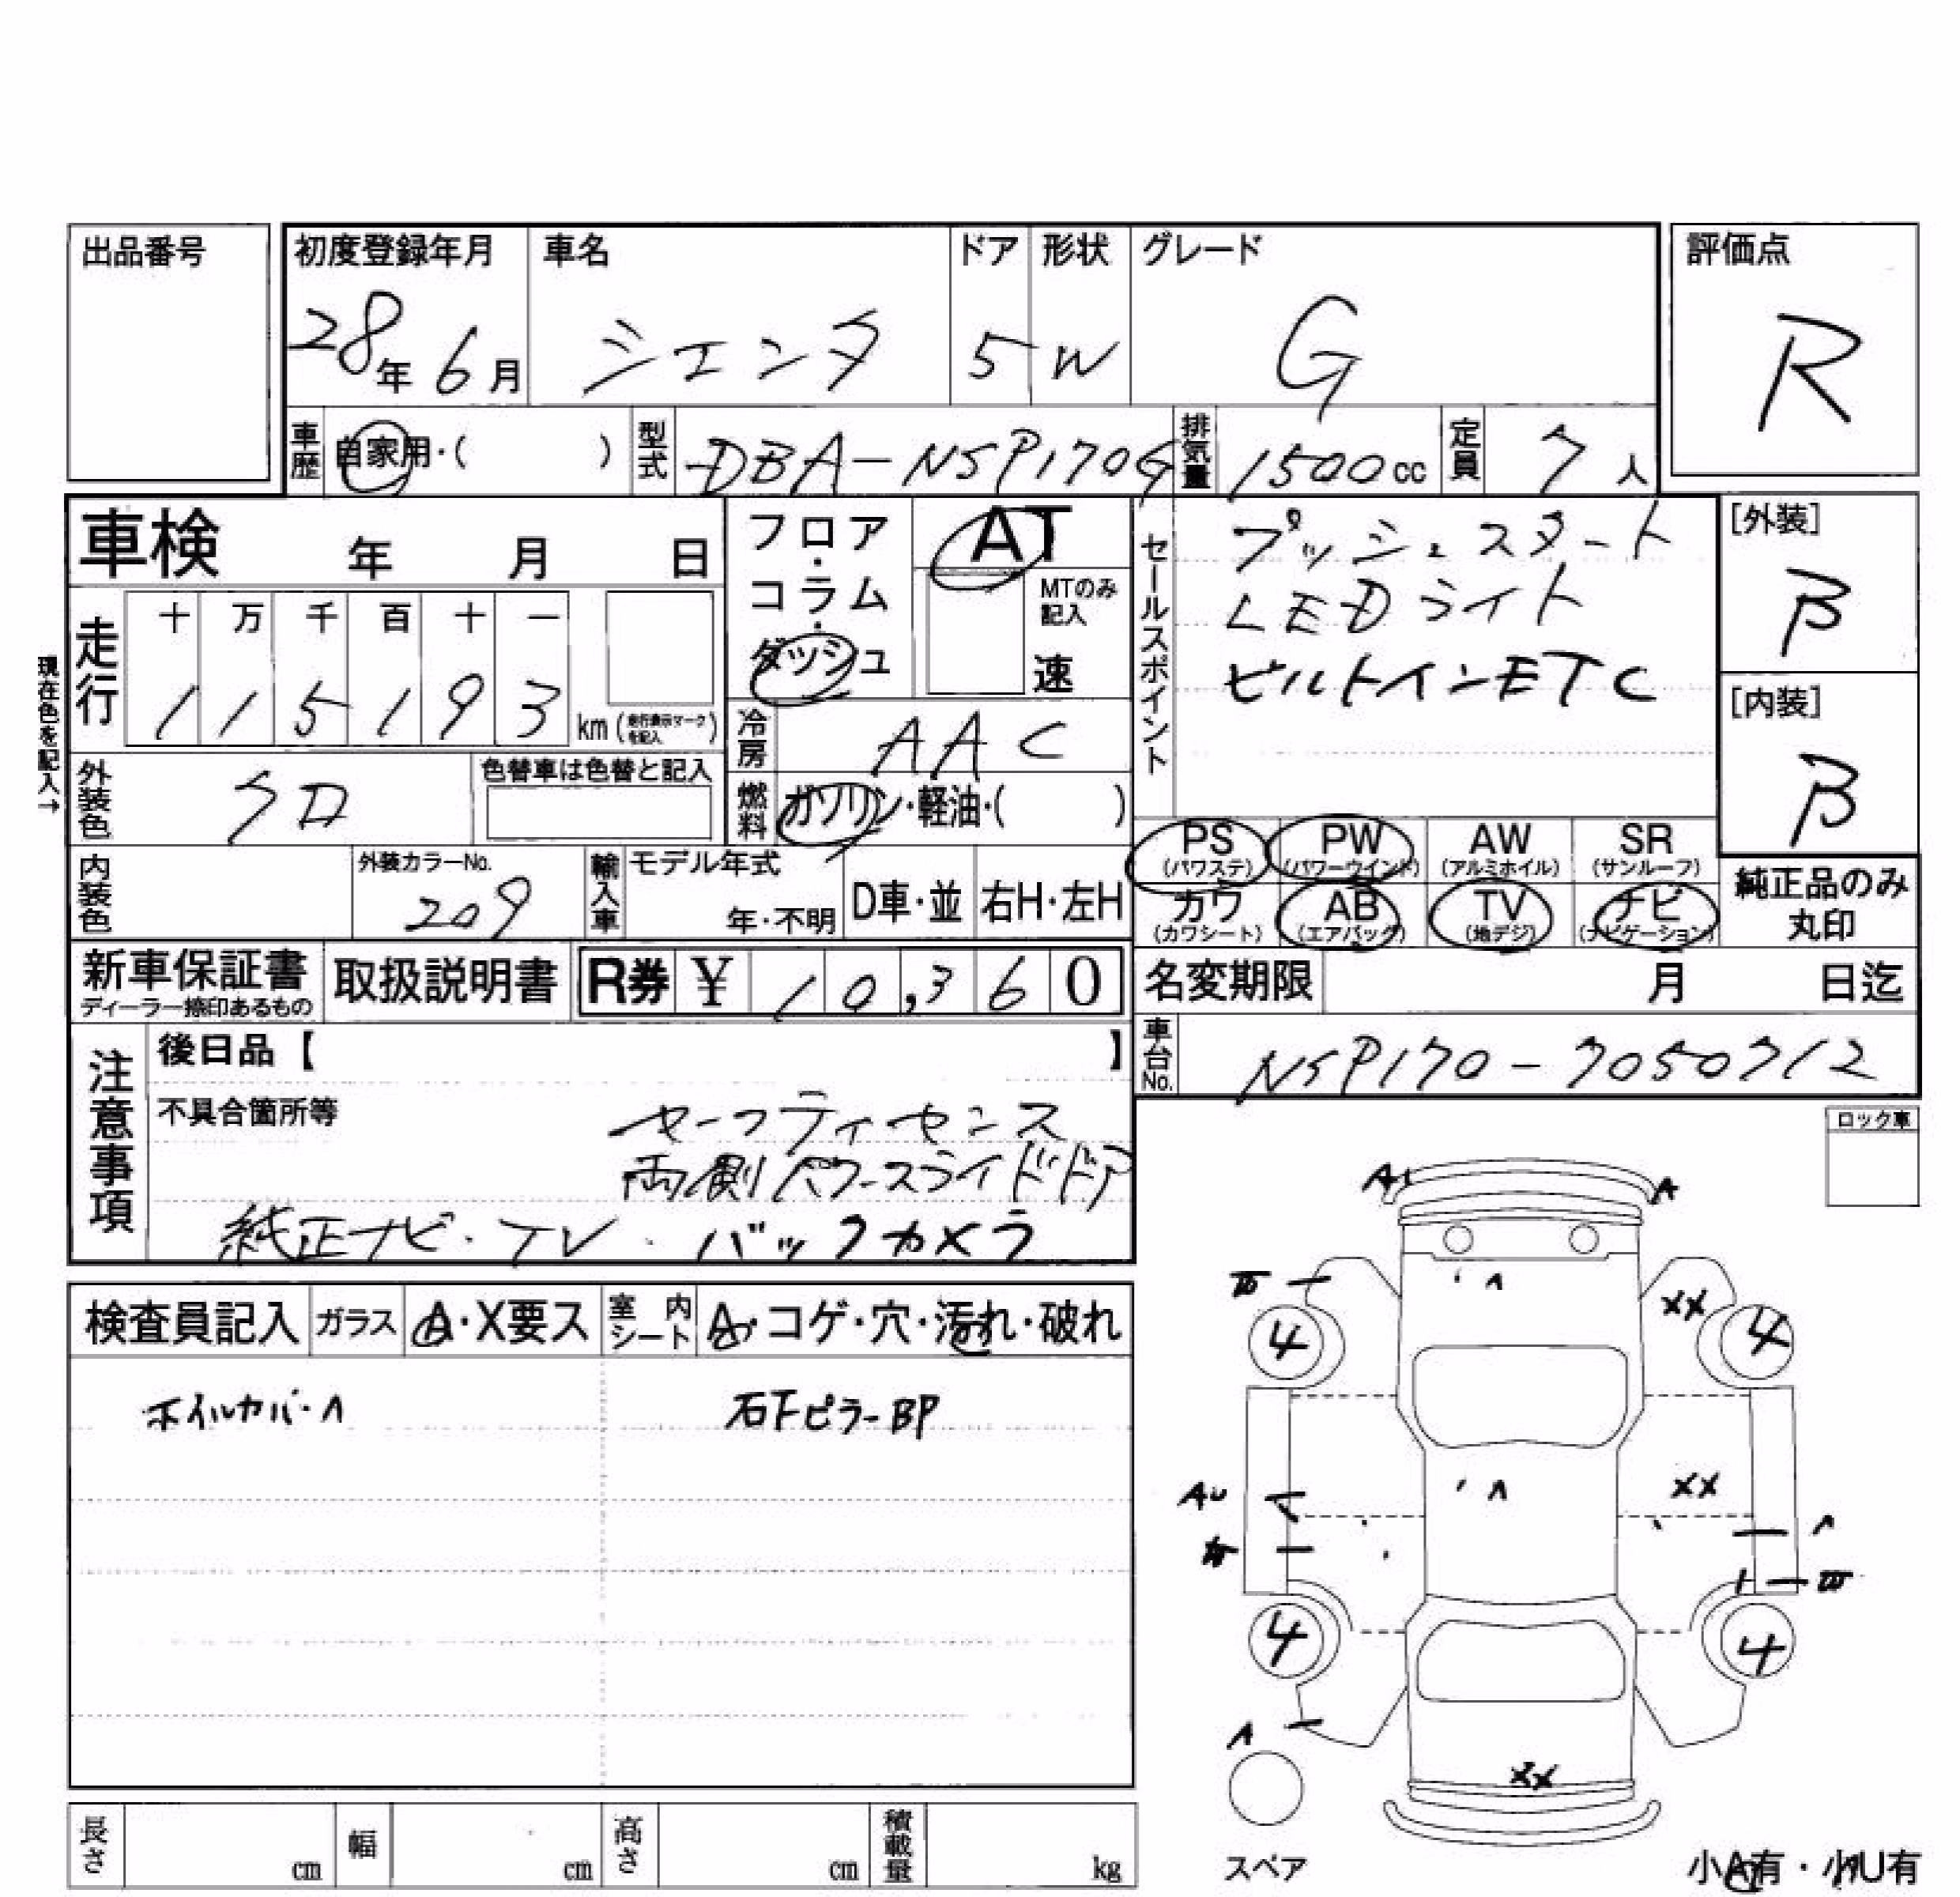 出品番号
初度登録年月 車名 ドア 形状 グレード 評価点
28年 6月 シエンタ 5 W G R
車歴 自家用・( ) 型式 DBA-NSP170G 排気量 1500cc 定員 7人
車検 年 月 日
フロア・コラム・ダッシュ AT
MTのみ記入 速
セールスポイント
プッシュスタート
LEDライト
ビルトインETC
[外装] B
[内装] B
現在色を記入→
走行 十 万 千 百 十 一
1 1 5 1 9 3 km (走行表示マークを記入)
冷房 AAC
外装色 クロ 色替車は色替と記入
燃料 ガソリン・軽油・( )
PS (パワステ) PW (パワーウインド) AW (アルミホイル) SR (サンルーフ)
カワ (カワシート) AB (エアバック) TV (地デジ) ナビ (ナビゲーション)
純正品のみ丸印
内装色 外装カラーNo. 209 輸入車 モデル年式 年・不明 D車・並 右H・左H
新車保証書 ディーラー捺印あるもの 取扱説明書 R券 ¥ 10,360
名変期限 月 日迄
車台No. NSP170-7050712
注意事項
後日品【 】
不具合箇所等 セーフティセンス
両側パワースライドドア
純正ナビ・TV・バックカメラ
ロック車
検査員記入 ガラス A・X要ス 室内シート A・コゲ・穴・汚れ・破れ
ホイルカバーA 右Fピラー BP
A1 A
A
XX
4 4
A XX
AU
A
4 4
A
XX
スペア
小A有・小U有
長さ cm 幅 cm 高さ cm 積載量 kg